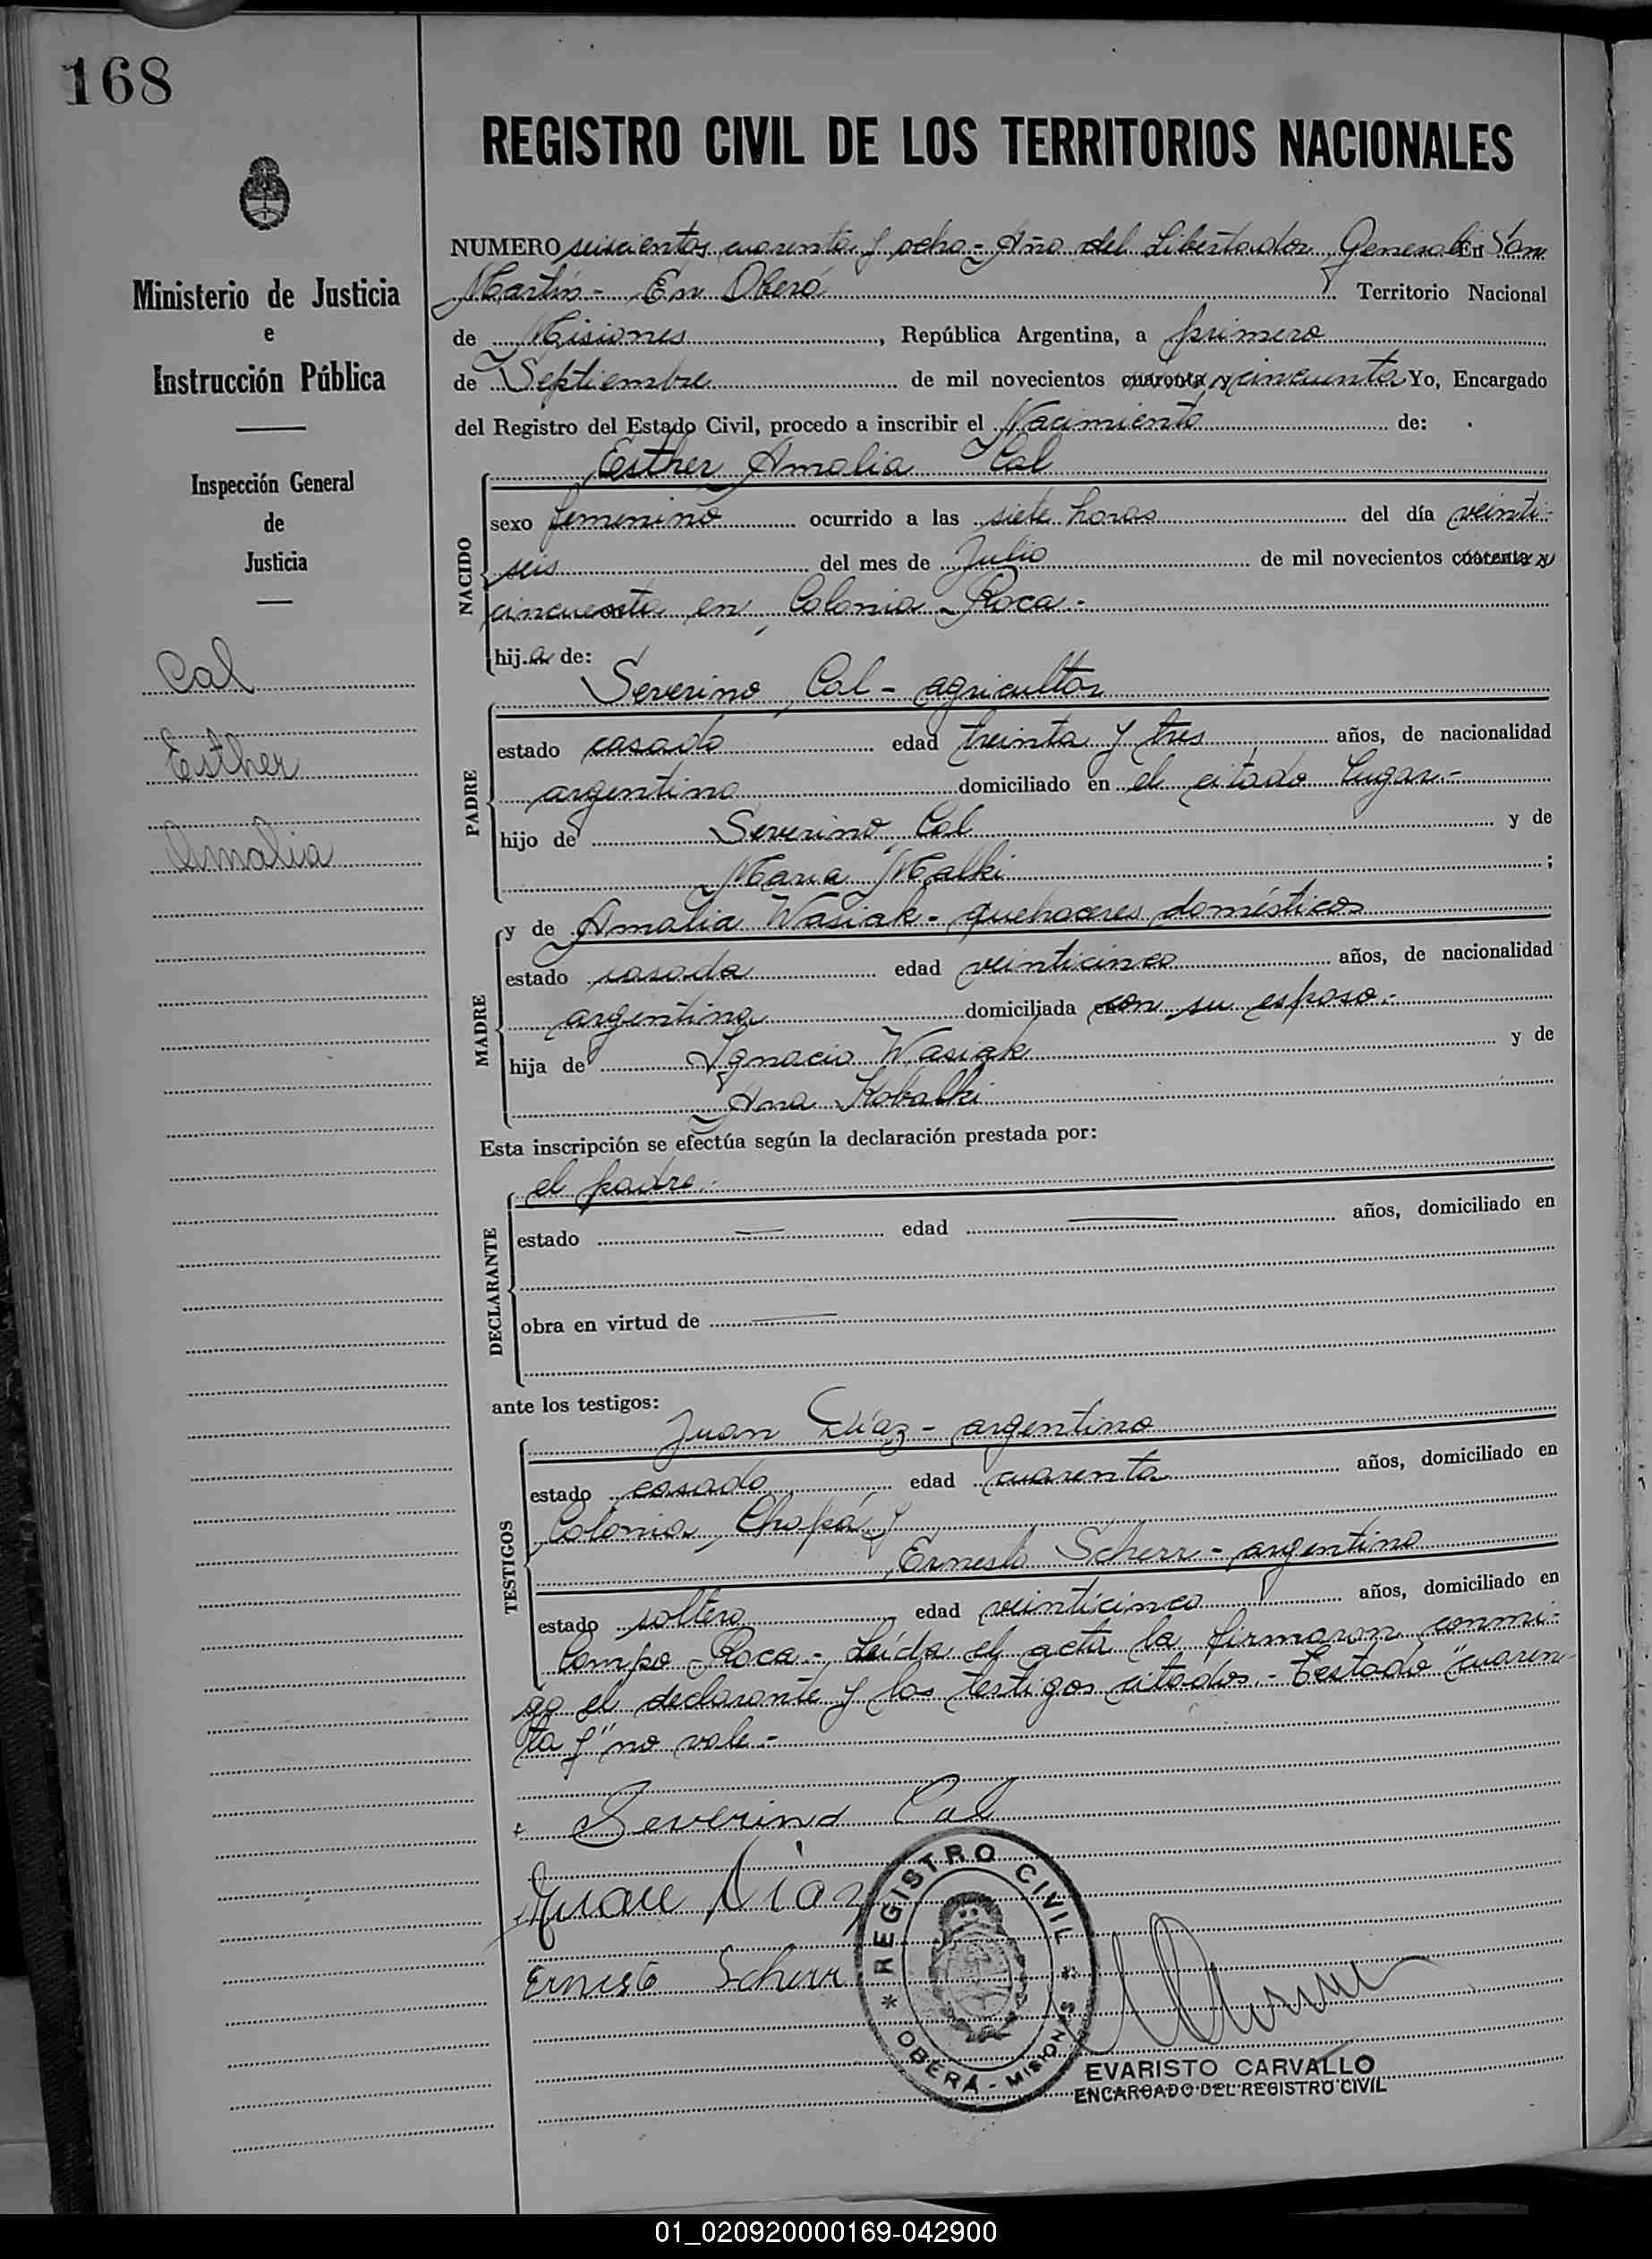 168
REGISTRO CIVIL DE LOS TERRITORIOS NACIONALES
Ministerio de Justicia
e
Instrucción Pública
Inspección General
de
Justicia
Cal
Esther
Amalia
NUMERO seiscientos cuarenta y ocho - Año del Libertador General En San
Martín - En Oberá Territorio Nacional
de Misiones, República Argentina, a primero
de Septiembre de mil novecientos cuarenta y cincuenta Yo, Encargado
del Registro del Estado Civil, procedo a inscribir el Nacimiento de:
Esther Amalia Cal
NACIDO
sexo femenino ocurrido a las siete horas del día veinti-
seis del mes de Julio de mil novecientos cuarenta y
cincuenta en Colonia Roca-
hija de:
Severino Cal - agricultor
PADRE
estado casado edad treinta y tres años, de nacionalidad
argentino domiciliado en el citado lugar.-
hijo de Severino Cal y de
Maria Malki;
MADRE
y de Amalia Wasiak - quehaceres domésticos
estado casada edad veinticinco años, de nacionalidad
argentina domiciliada con su esposo.-
hija de Ignacio Wasiak y de
Ana Kobalki
Esta inscripción se efectúa según la declaración prestada por:
DECLARANTE
el padre.-
estado — edad — años, domiciliado en
obra en virtud de —
ante los testigos:
TESTIGOS
Juan Díaz - argentino
estado casado edad cuarenta años, domiciliado en
Colonia Chapá y
Ernesto Scherr - argentino
estado soltero edad veinticinco años, domiciliado en
Campo Roca - Leída el acta la firmaron conmi-
go el declarante y los testigos citados.- Testado "cuaren-
ta y" no vale.-
Severino Cal
Juan Diaz
Ernesto Scherr
* REGISTRO CIVIL *
OBERA - MISIONES
EVARISTO CARVALLO
ENCARGADO DEL REGISTRO CIVIL
01_020920000169-042900